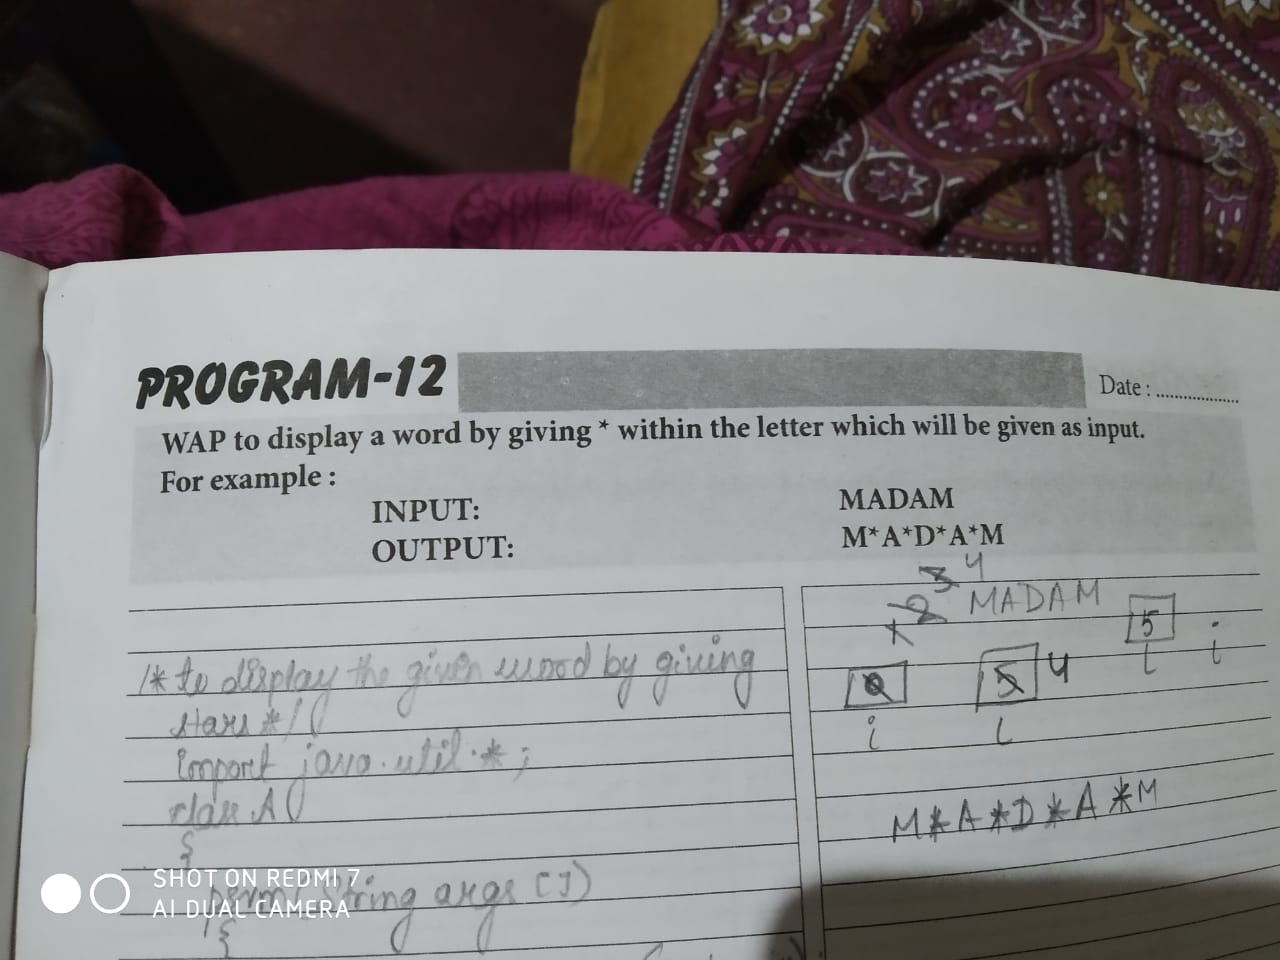 PROGRAM-12
Date : ...................
WAP to display a word by giving * within the letter which will be given as input.
For example :
INPUT: MADAM
OUTPUT: M*A*D*A*M
/* to display the given word by giving
stars */
import java.util.*;
class A()
{
String args [])
{
1 2 3 4
MADAM
0 5 4 5
i l l i
M*A*D*A*M
SHOT ON REDMI 7
AI DUAL CAMERA